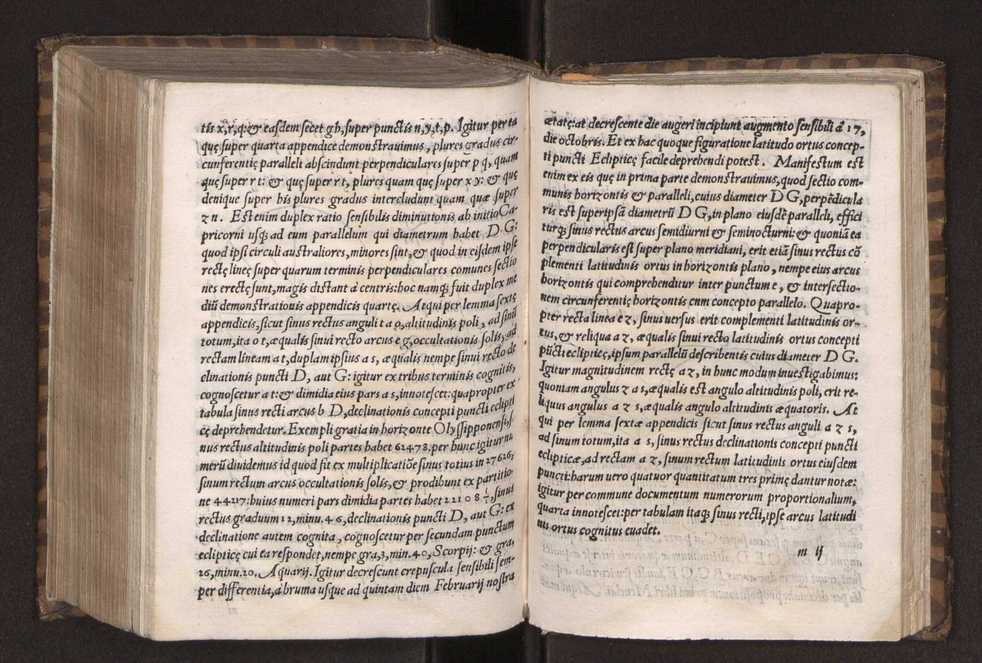 tis x, r, q: & easdem secet g h, super punctis n, y, t, p. Igitur per ea
quę super quarta appendice demonstravimus, plures gradus cir-
cunferentię paralleli abscindunt perpendiculares super p q, quam
quę super r t: & quę super r t, plures quam quę super x y: & quę
denique super his plures gradus intercludunt quam quæ super
z n. Est enim duplex ratio sensibilis diminutionis ab initio Ca-
pricorni usq; ad eum parallelum qui diametrum habet D G:
quod ipsi circuli australiores, minores sint, & quod in eisdem ipse
rectę lineę super quarum terminis perpendiculares comunes sectio
nes erectę sunt, magis distant à centris: hoc namq; fuit duplex me
diũ demonstrationis appendicis quartę. Atqui per lemma sextę
appendicis, sicut sinus rectus anguli t a o, altitudinis poli, ad sinũ
totum, ita o t, æqualis sinui recto arcus e g, occultationis solis, ad
rectam lineam a t, duplam ipsius a s, æqualis nempe sinui recto de
clinationis puncti D, aut G: igitur ex tribus terminis cognitis,
cognoscetur a t: & dimidia eius pars a s, innotescet: quapropter ex
tabula sinus recti arcus b D, declinationis concepti puncti eclipti
cę deprehendetur. Exempli gratia in horizonte Olyssipponensi, si
nus rectus altitudinis poli partes habet 62478. per hunc igitur nu
merũ dividemus id quod fit ex multiplicatiõe sinus totius in 27626,
sinum rectum arcus occultationis solis, & prodibunt ex partitio-
ne 44217: huius numeri pars dimidia partes habet 22108 ½, sinus
rectus graduum 12, minu. 46, declinationis puncti D, aut G: ex
declinatione autem cognita, cognoscetur per secundam punctum
eclipticę cui ea respondet, nempe gra, 3, min. 40, Scorpij: & gra,
26, minu. 20. Aquarij. Igitur decrescunt crepuscula sensibili sem-
per differentia, a bruma usque ad quintam diem Februarij nostra
ætate: at decrescente die augeri incipiunt augmento sensibili à 17,
die octobris. Et ex hac quoque figuratione latitudo ortus concep-
ti puncti Eclipticę facile deprehendi potest. Manifestum est
enim ex eis quę in prima parte demonstravimus, quod sectio com-
munis horizontis & paralleli, cuius diameter D G, perpẽdicula
ris est super ipsã diametrũ D G, in plano eiusdẽ paralleli, effici
turq; sinus rectus arcus semidiurni & seminocturni: & quoniã ea
perpendicularis est super plano meridiani, erit etiã sinus rectus cõ
plementi latitudinis ortus in horizontis plano, nempe eius arcus
horizontis qui comprehenditur inter punctum e, & intersectio-
nem circunferentię horizontis cum concepto parallelo. Quapro-
pter recta linea e z, sinus versus erit complementi latitudinis or-
tus, & reliqua a z, æqualis sinui recto latitudinis ortus concepti
pũcti eclipticę, ipsum parallelũ describentis cuius diameter D G.
Igitur magnitudinem rectę a z, in hunc modum investigabimus:
quoniam angulus z a s, æqualis est angulo altitudinis poli, erit re-
liquus angulus a z s, æqualis angulo altitudinis æquatoris. At
qui per lemma sextæ appendicis sicut sinus rectus anguli a z s,
ad sinum totum, ita a s, sinus rectus declinationis concepti puncti
eclipticæ, ad rectam a z, sinum rectum latitudinis ortus eiusdem
puncti: harum vero quatuor quantitatum tres primę dantur notæ:
igitur per commune documentum numerorum proportionalium,
quarta innotescet: per tabulam itaq; sinus recti, ipse arcus latitudi
nis ortus cognitus evadet.
m ij